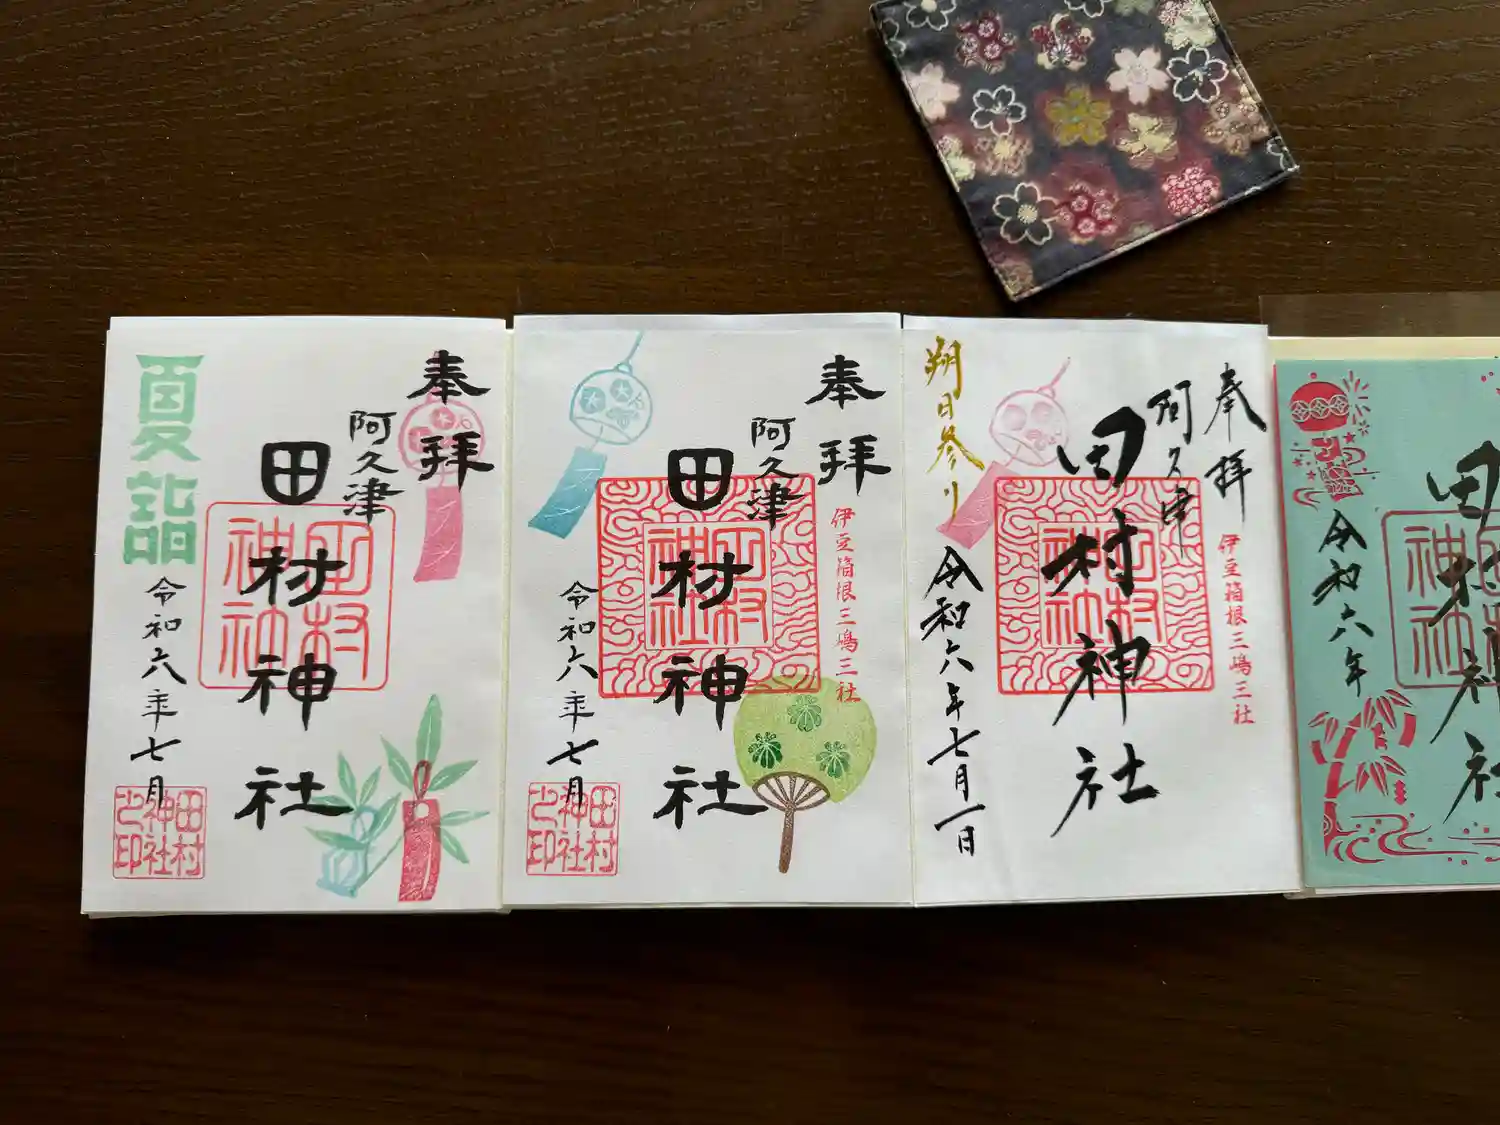 奉拝
阿久津
田村神社
田村神社
夏詣
令和六年七月
田村神社之印
奉拝
阿久津
伊豆箱根三嶋三社
田村神社
田村神社
令和六年七月
田村神社之印
奉拝
阿久津
伊豆箱根三嶋三社
田村神社
田村神社
朔日参り
令和六年七月一日
田村神社
令和六年